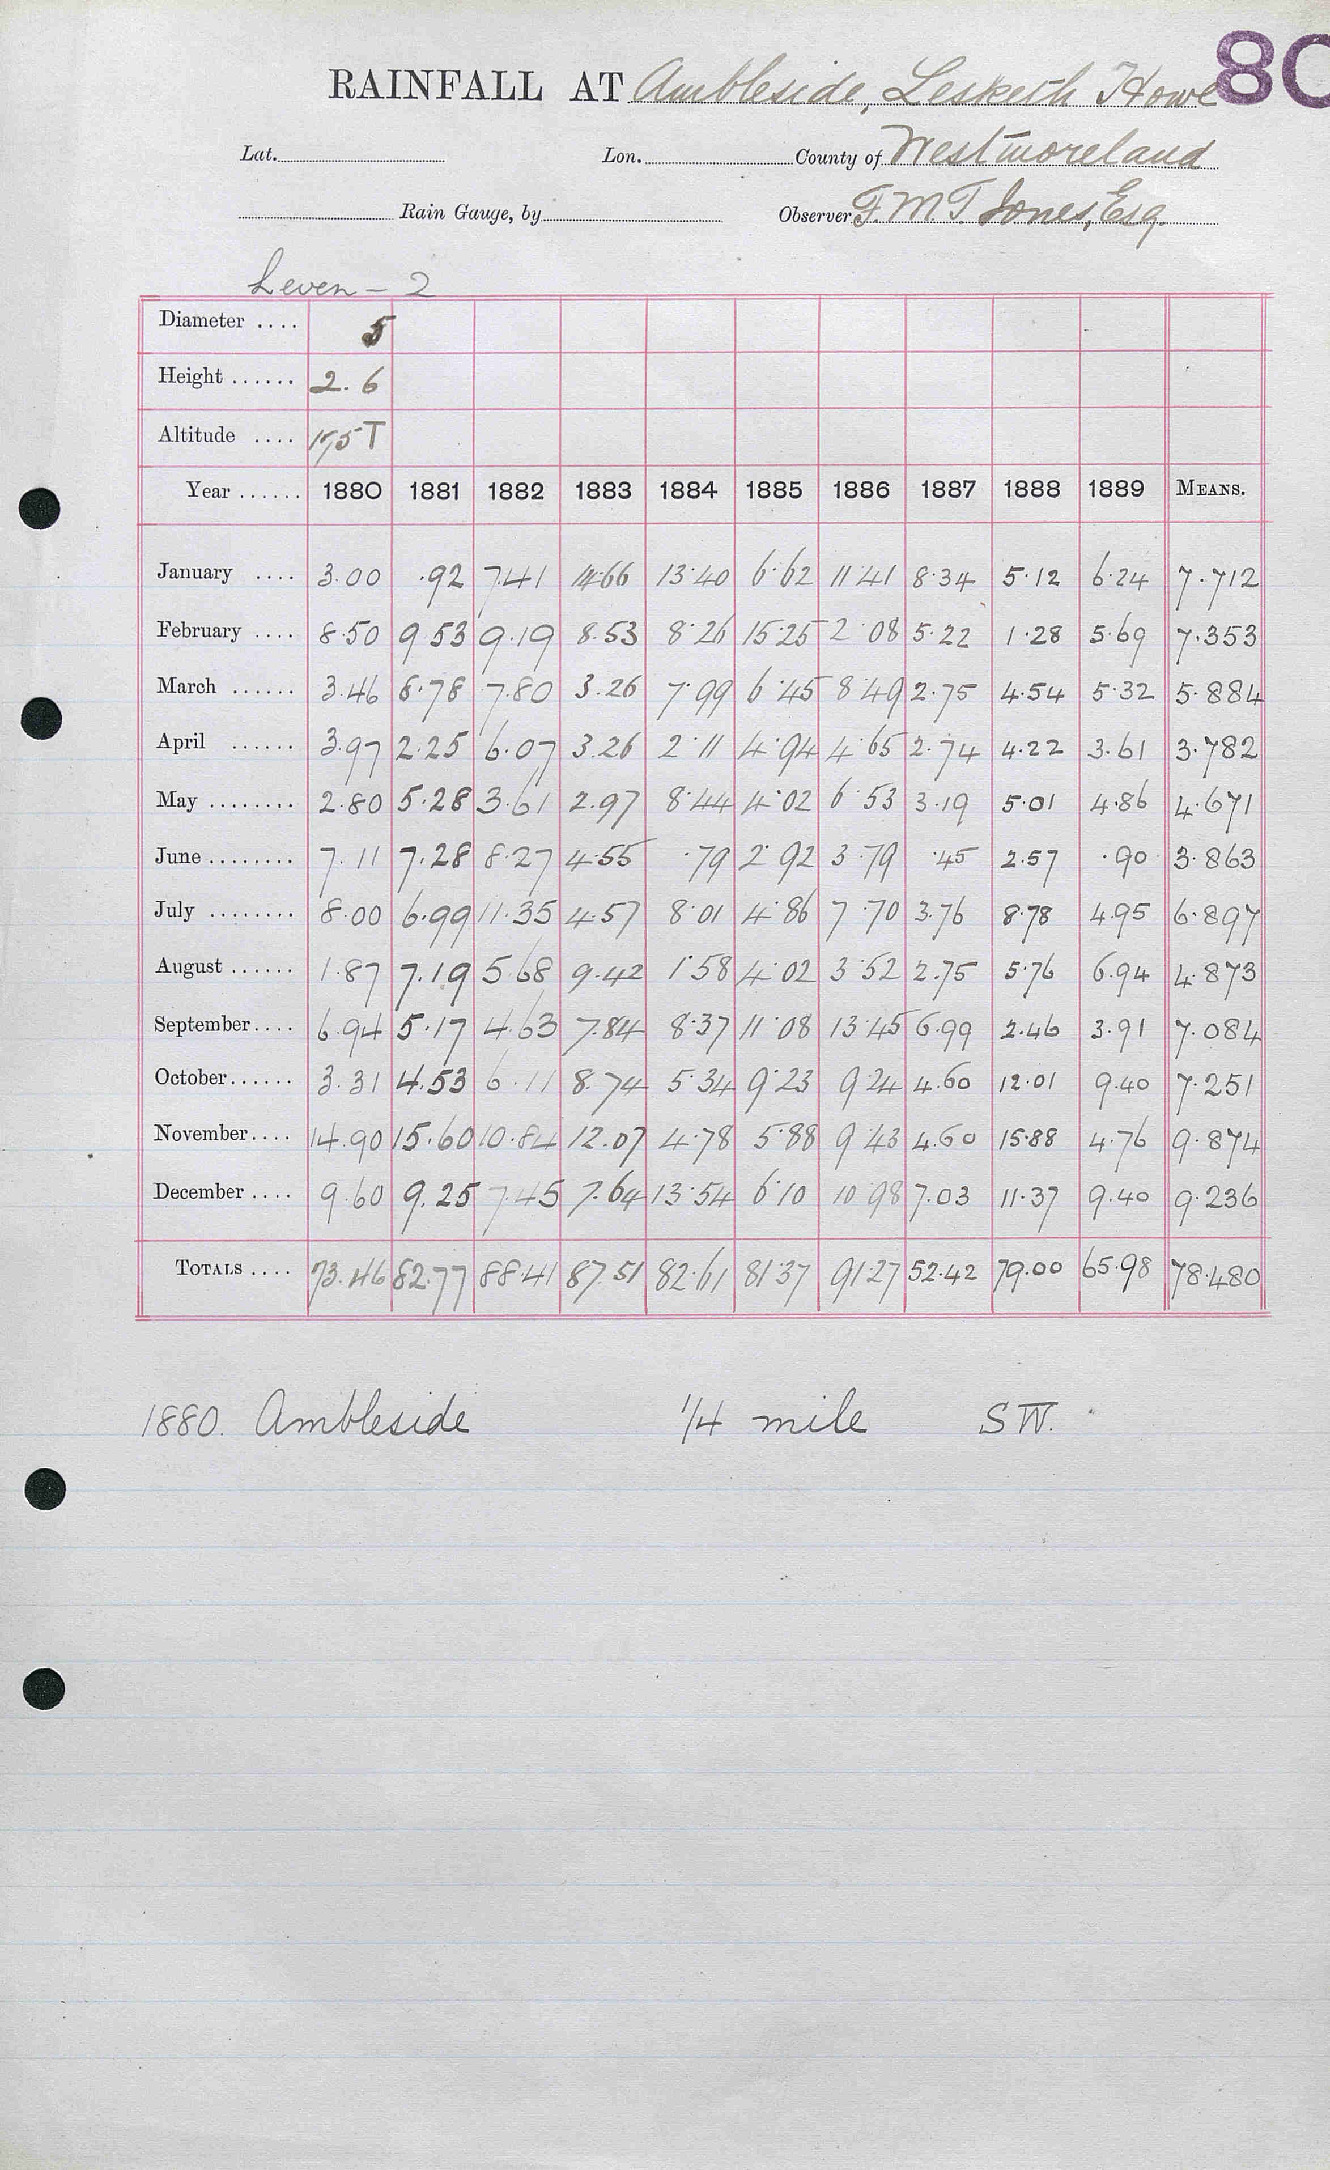 80
RAINFALL AT Ambleside, Lesketh Howe
Lat. Lon. County of Westmoreland
Rain Gauge, by Observer F. M. T. Jones, Esq.
Leven - 2
Diameter .... 5
Height ...... 2.6
Altitude .... 175 T
Year ...... 1880 1881 1882 1883 1884 1885 1886 1887 1888 1889 MEANS.
January .... 3.00 .92 7.41 14.66 13.40 6.62 11.41 8.34 5.12 6.24 7.712
February .... 8.50 9.53 9.19 8.53 8.26 15.25 2.08 5.22 1.28 5.69 7.353
March ...... 3.46 8.78 7.80 3.26 7.99 6.45 8.49 2.75 4.54 5.32 5.884
April ...... 3.97 2.25 6.07 3.26 2.11 4.94 4.65 2.74 4.22 3.61 3.782
May ........ 2.80 5.28 3.61 2.97 8.44 4.02 6.53 3.19 5.01 4.86 4.671
June ........ 7.11 7.28 8.27 4.55 .79 2.92 3.79 .45 2.57 .90 3.863
July ........ 8.00 6.99 11.35 4.57 8.01 4.86 7.70 3.76 8.78 4.95 6.897
August ...... 1.87 7.19 5.68 9.42 1.58 4.02 3.52 2.75 5.76 6.94 4.873
September.... 6.94 5.17 4.63 7.84 8.37 11.08 13.45 6.99 2.46 3.91 7.084
October...... 3.31 4.53 6.11 8.74 5.34 9.23 9.24 4.60 12.01 9.40 7.251
November.... 14.90 15.60 10.84 12.07 4.78 5.88 9.43 4.60 15.88 4.76 9.874
December .... 9.60 9.25 7.45 7.64 13.54 6.10 10.98 7.03 11.37 9.40 9.236
TOTALS .... 73.46 82.77 88.41 87.51 82.61 81.37 91.27 52.42 79.00 65.98 78.480
1880. Ambleside 1/4 mile SW.